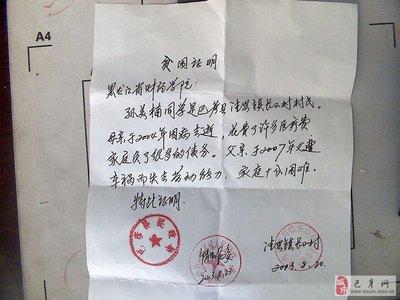 A4
贫困证明
黑龙江省财经学院:
孙美楠同学是巴彦县洼兴镇长不村村民。
母亲于2004年因病去逝 花费了许多医疗费
家庭负了很多的债务。父亲于2007年又遭
车祸而失去劳动能力, 家庭十分困难。
特此证明
洼兴镇 村
2013.8.20
巴彦网
www.bayan.ccoo.cn